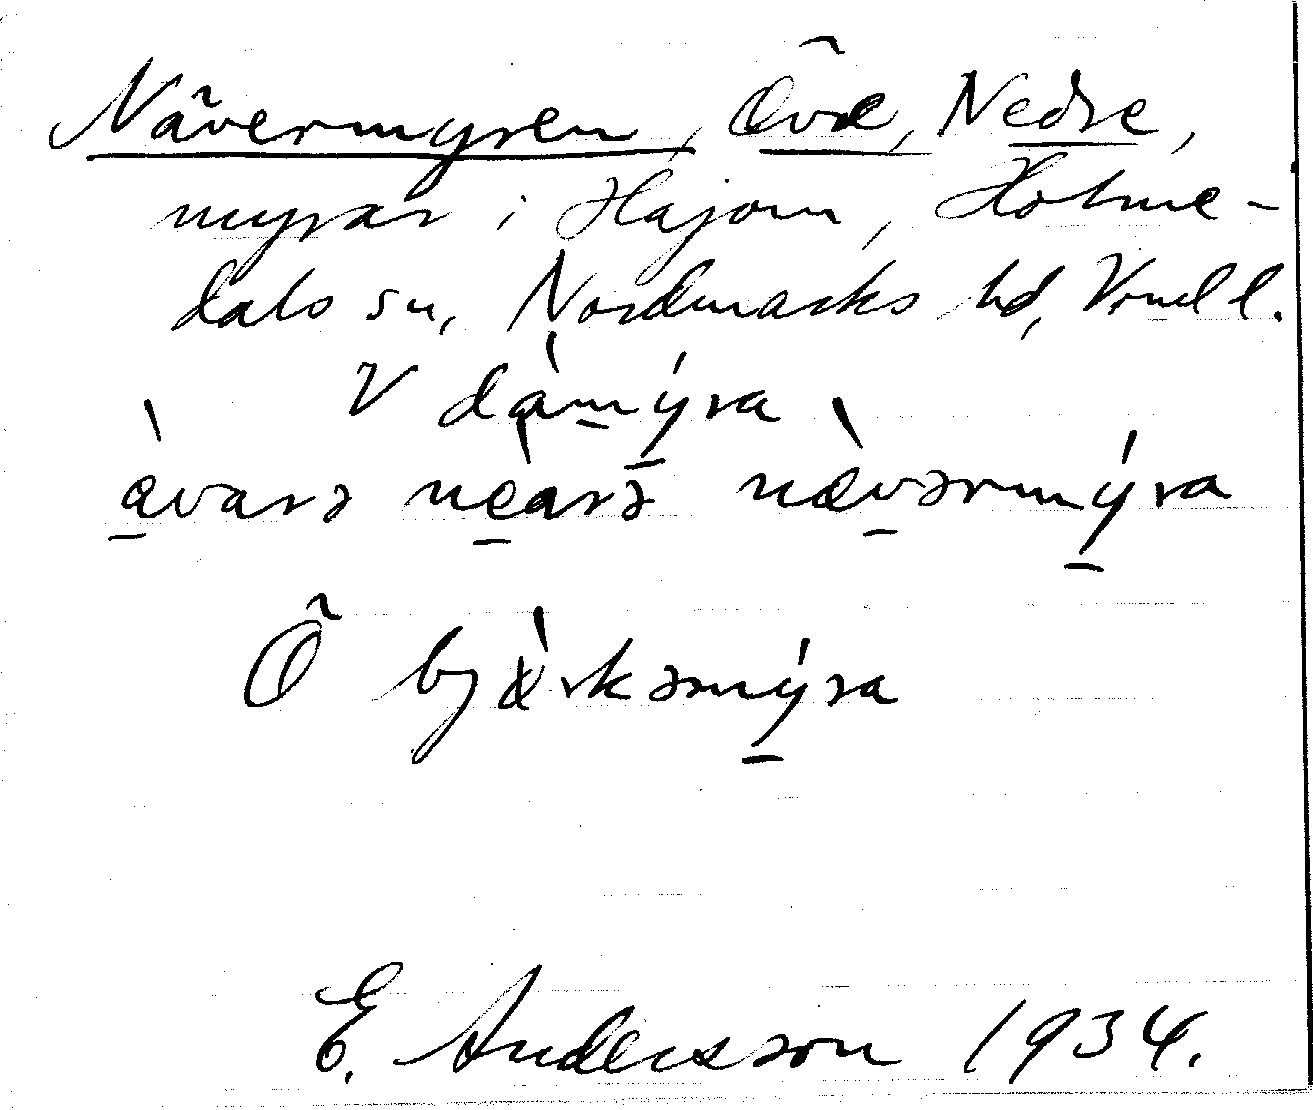 Nävermyren, Övre, Nedre,
myrar i Häjom, Holme-
dals sn, Nordmarks hd, Vrml l.
V dàmýra
ǽvarə nèarə nævərmýra
Ö bjærkəmýra
E. Andersson 1934.